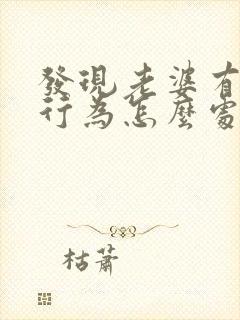 發現老婆有
行為怎麼處
枯蕭